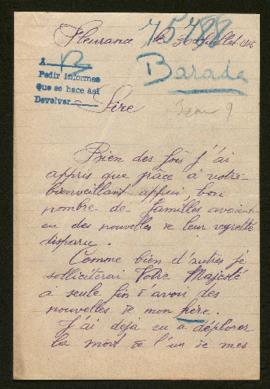 75.788
Fleurance le 30 Juillet 1916
Barada
A
Pedir informes
que se hace así
Devolver
Sire
Bien des fois j'ai
appris que grâce à votre
bienveillant appui bon
nombre de familles avaient
eu des nouvelles de leur regretté
disparu.
Comme bien d'autres je
solliciterai Votre Majesté
a seule fin d'avoir des
nouvelles de mon père.
J'ai déjà eu à déplorer
la mort de l'un de mes